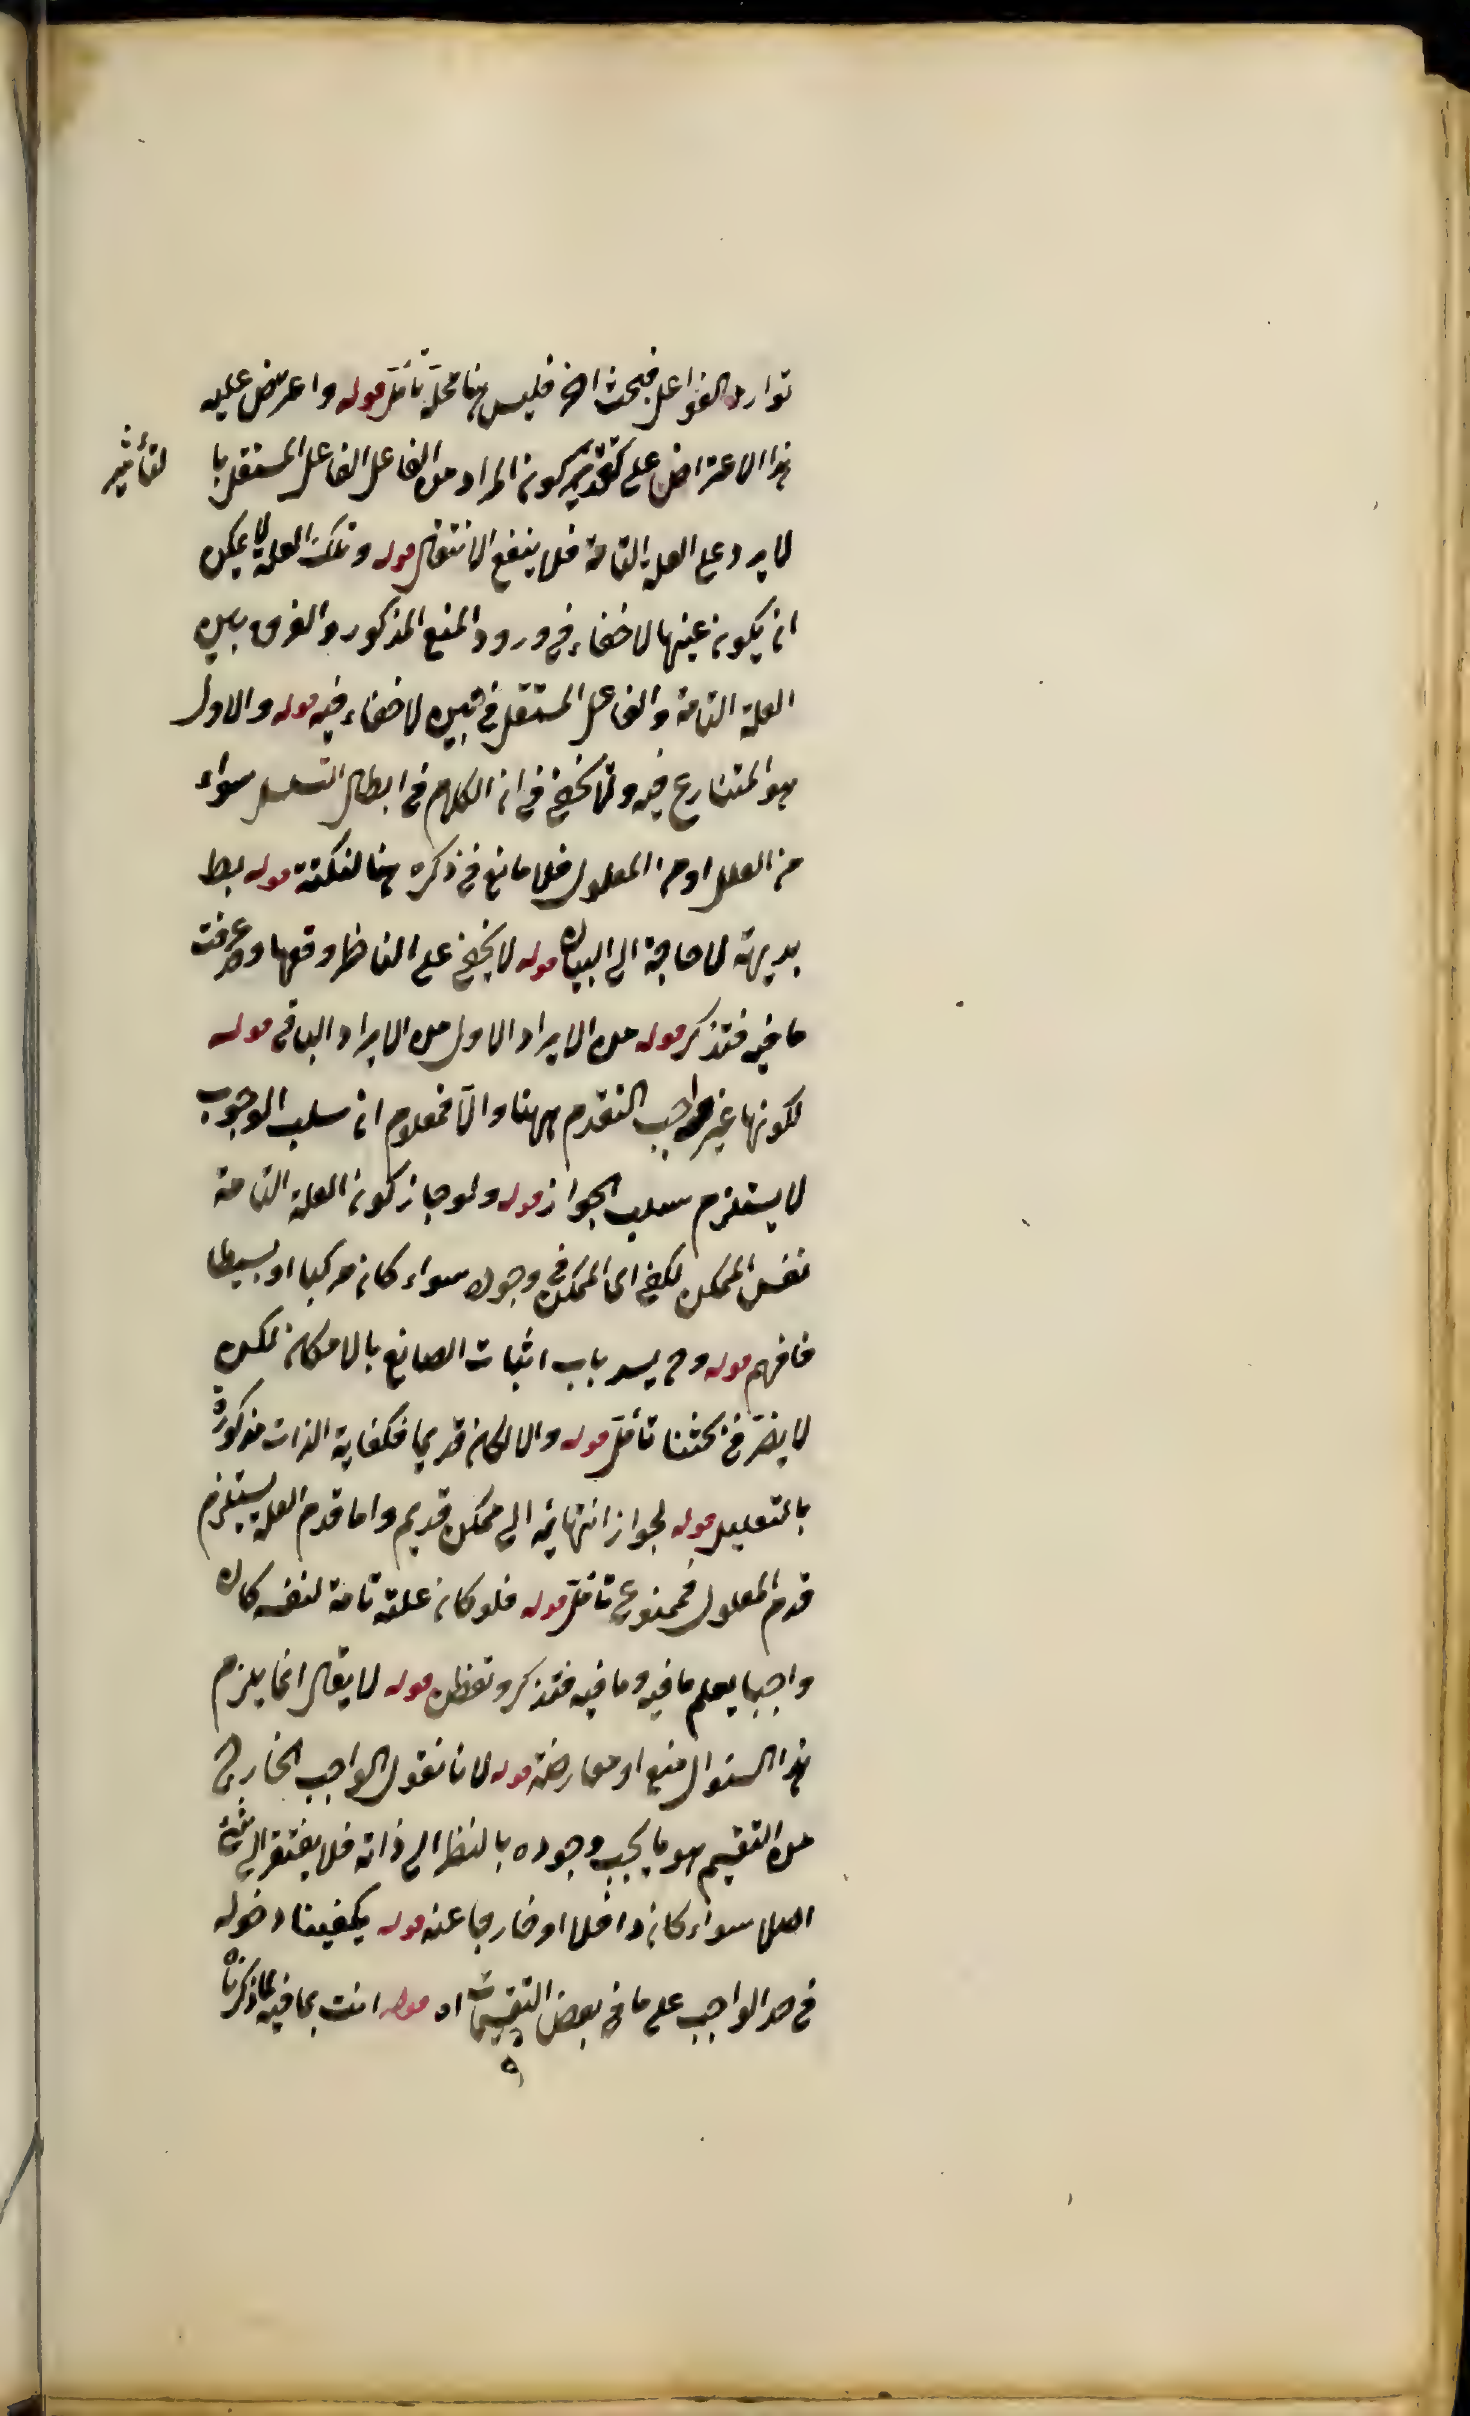 توارد الفواعل فبحث اخر فليس هنا محله تأمل قوله واعرض عليه
هذا الاعتراض على تقدير كون المراد من الفاعل الفاعل المستقل با لتأثير
لا يرد على العلة التامة فلا ينفع الانتقال قوله وتلك العلة لا يمكن
ان يكون عينها لا خفاء في ورود المنع المذكور والفرق بين
العلة التامة والفاعل المستقل في لا خفاء فيه قوله والاول
هو المتنازع فيه ولا يخفى ان الكلام في ابطال التسلسل سواء
من العلل او من المعلول فلا مانع في ذكره هنا لنكتة قوله بط
بديهة لا حاجة الى البيان قوله لا يخفى على الناظر وقعها وقد عرفت
ما فيه فتذكر قوله من الايراد الاول من الايراد الباقي قوله
لكونها غير واجب التقدم ههنا والا فمعلوم ان سلب الوجوب
لا يستلزم سلب الجواز قوله ولو جاز كون العلة التامة
نفس الممكن لكفى اى الممكن في وجوده سواء كان مركبا او بسيطا
فافهم قوله وح يسد باب اثبات الصانع بالامكان لكن
لا يضر في بحثنا تأمل قوله والا لكان قديما فكفاية الذات مذكورة
بالتعليل قوله لجواز انتهائه الى ممكن قديم واما قدم العلة يستلزم
قدم المعلول فممنوع تأمل قوله فلو كان علة تامة لنفسه كان
واجبا يعلم ما فيه وما فيه فتذكر وتفطن قوله لا يقال انما يلزم
هذا السئوال منع او معارضة قوله لانا نقول الواجب الخارج
من التقسيم هو ما يجب وجوده بالنظر الى ذاته فلا يفتقر الى شئ
اصلا سواء كان داخلا او خارجا عنه قوله يكفينا دخوله
في حد الواجب على ما في بعض التقسيمات اه قوله انت بما فيه لما ذكرناه